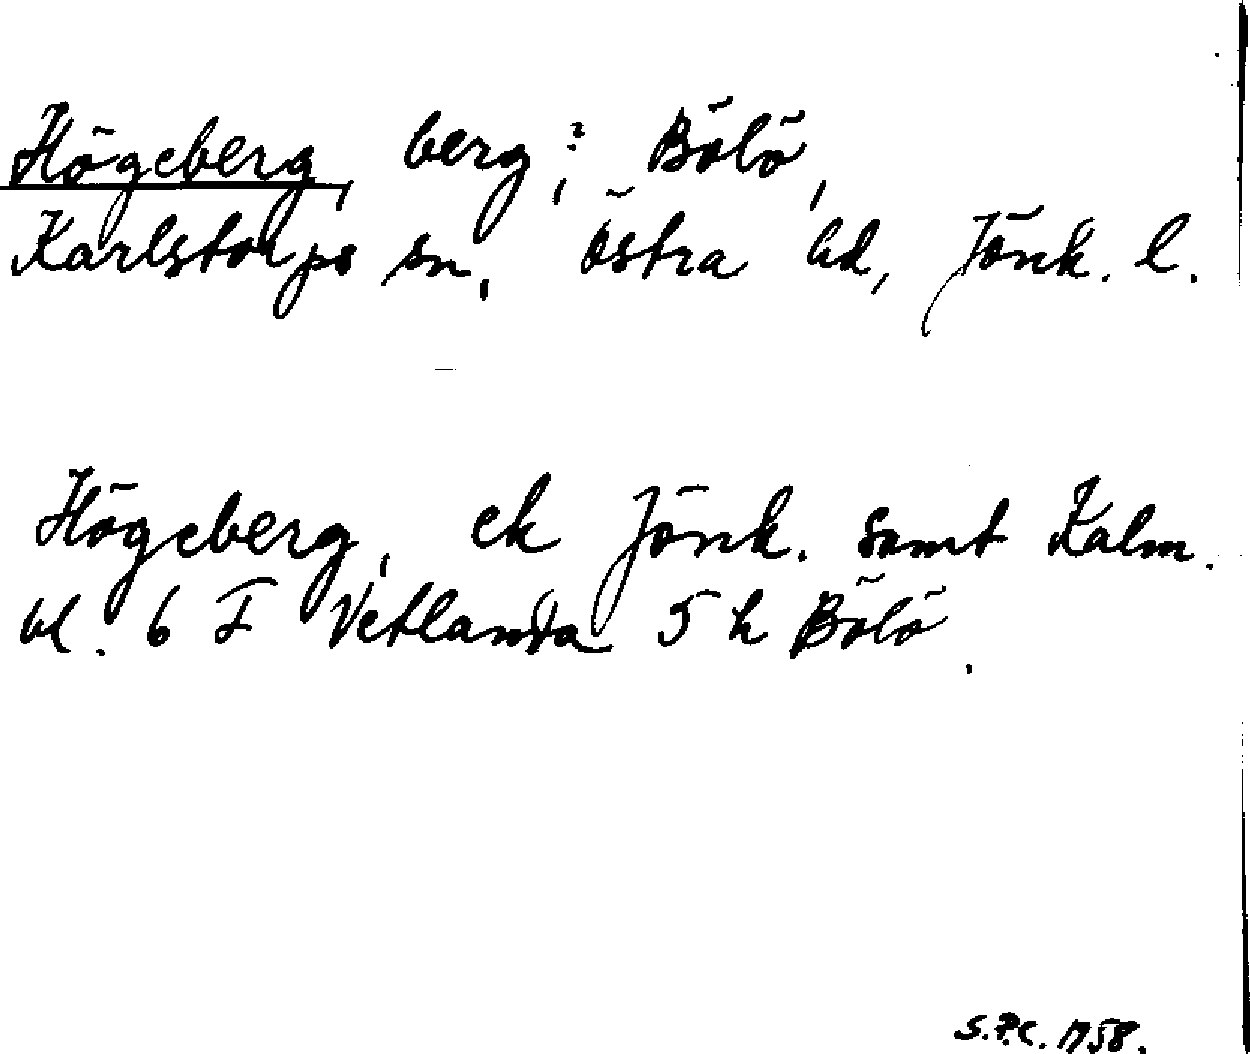 Högeberg, berg?, Bölö,
Karlstorps sn, Östra hd, Jönk. l.
Högeberg, ek Jönk. samt Kalm.
bl. 6 F Vetlanda 5 h Bölö.
S.P.C. 1958.